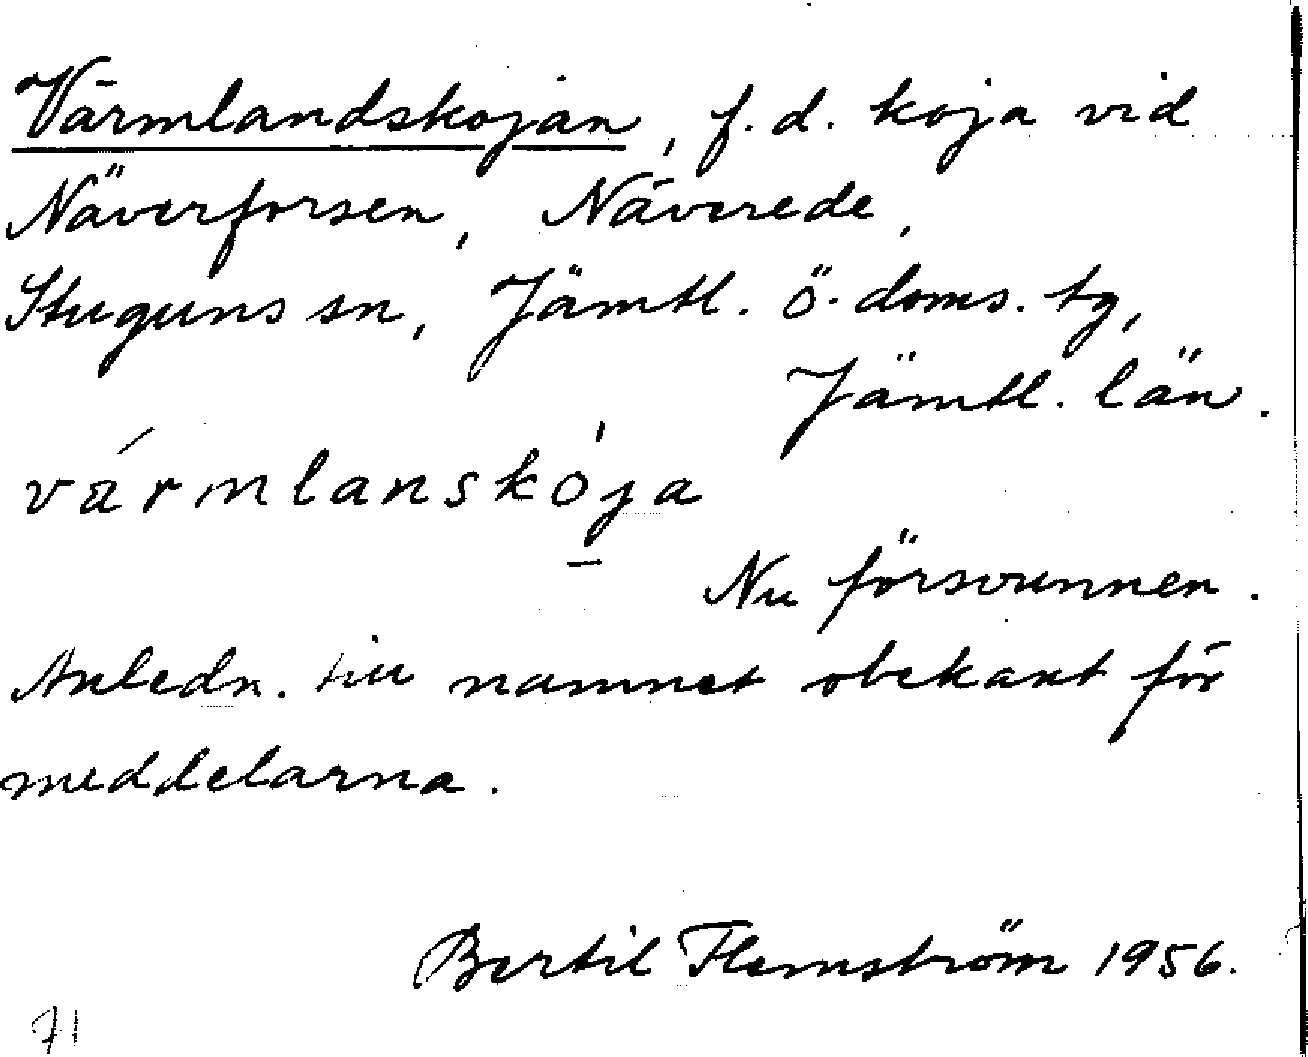 Värmlandskojan, f.d. koja vid
Näverforsen, Näverede,
Stuguns sn, Jämtl. ö. doms. tg,
Jämtl. län.
vármlanskója
Nu försvunnen.
Anledn. till namnet obekant för
meddelarna.
Bertil Flemström 1956.
71